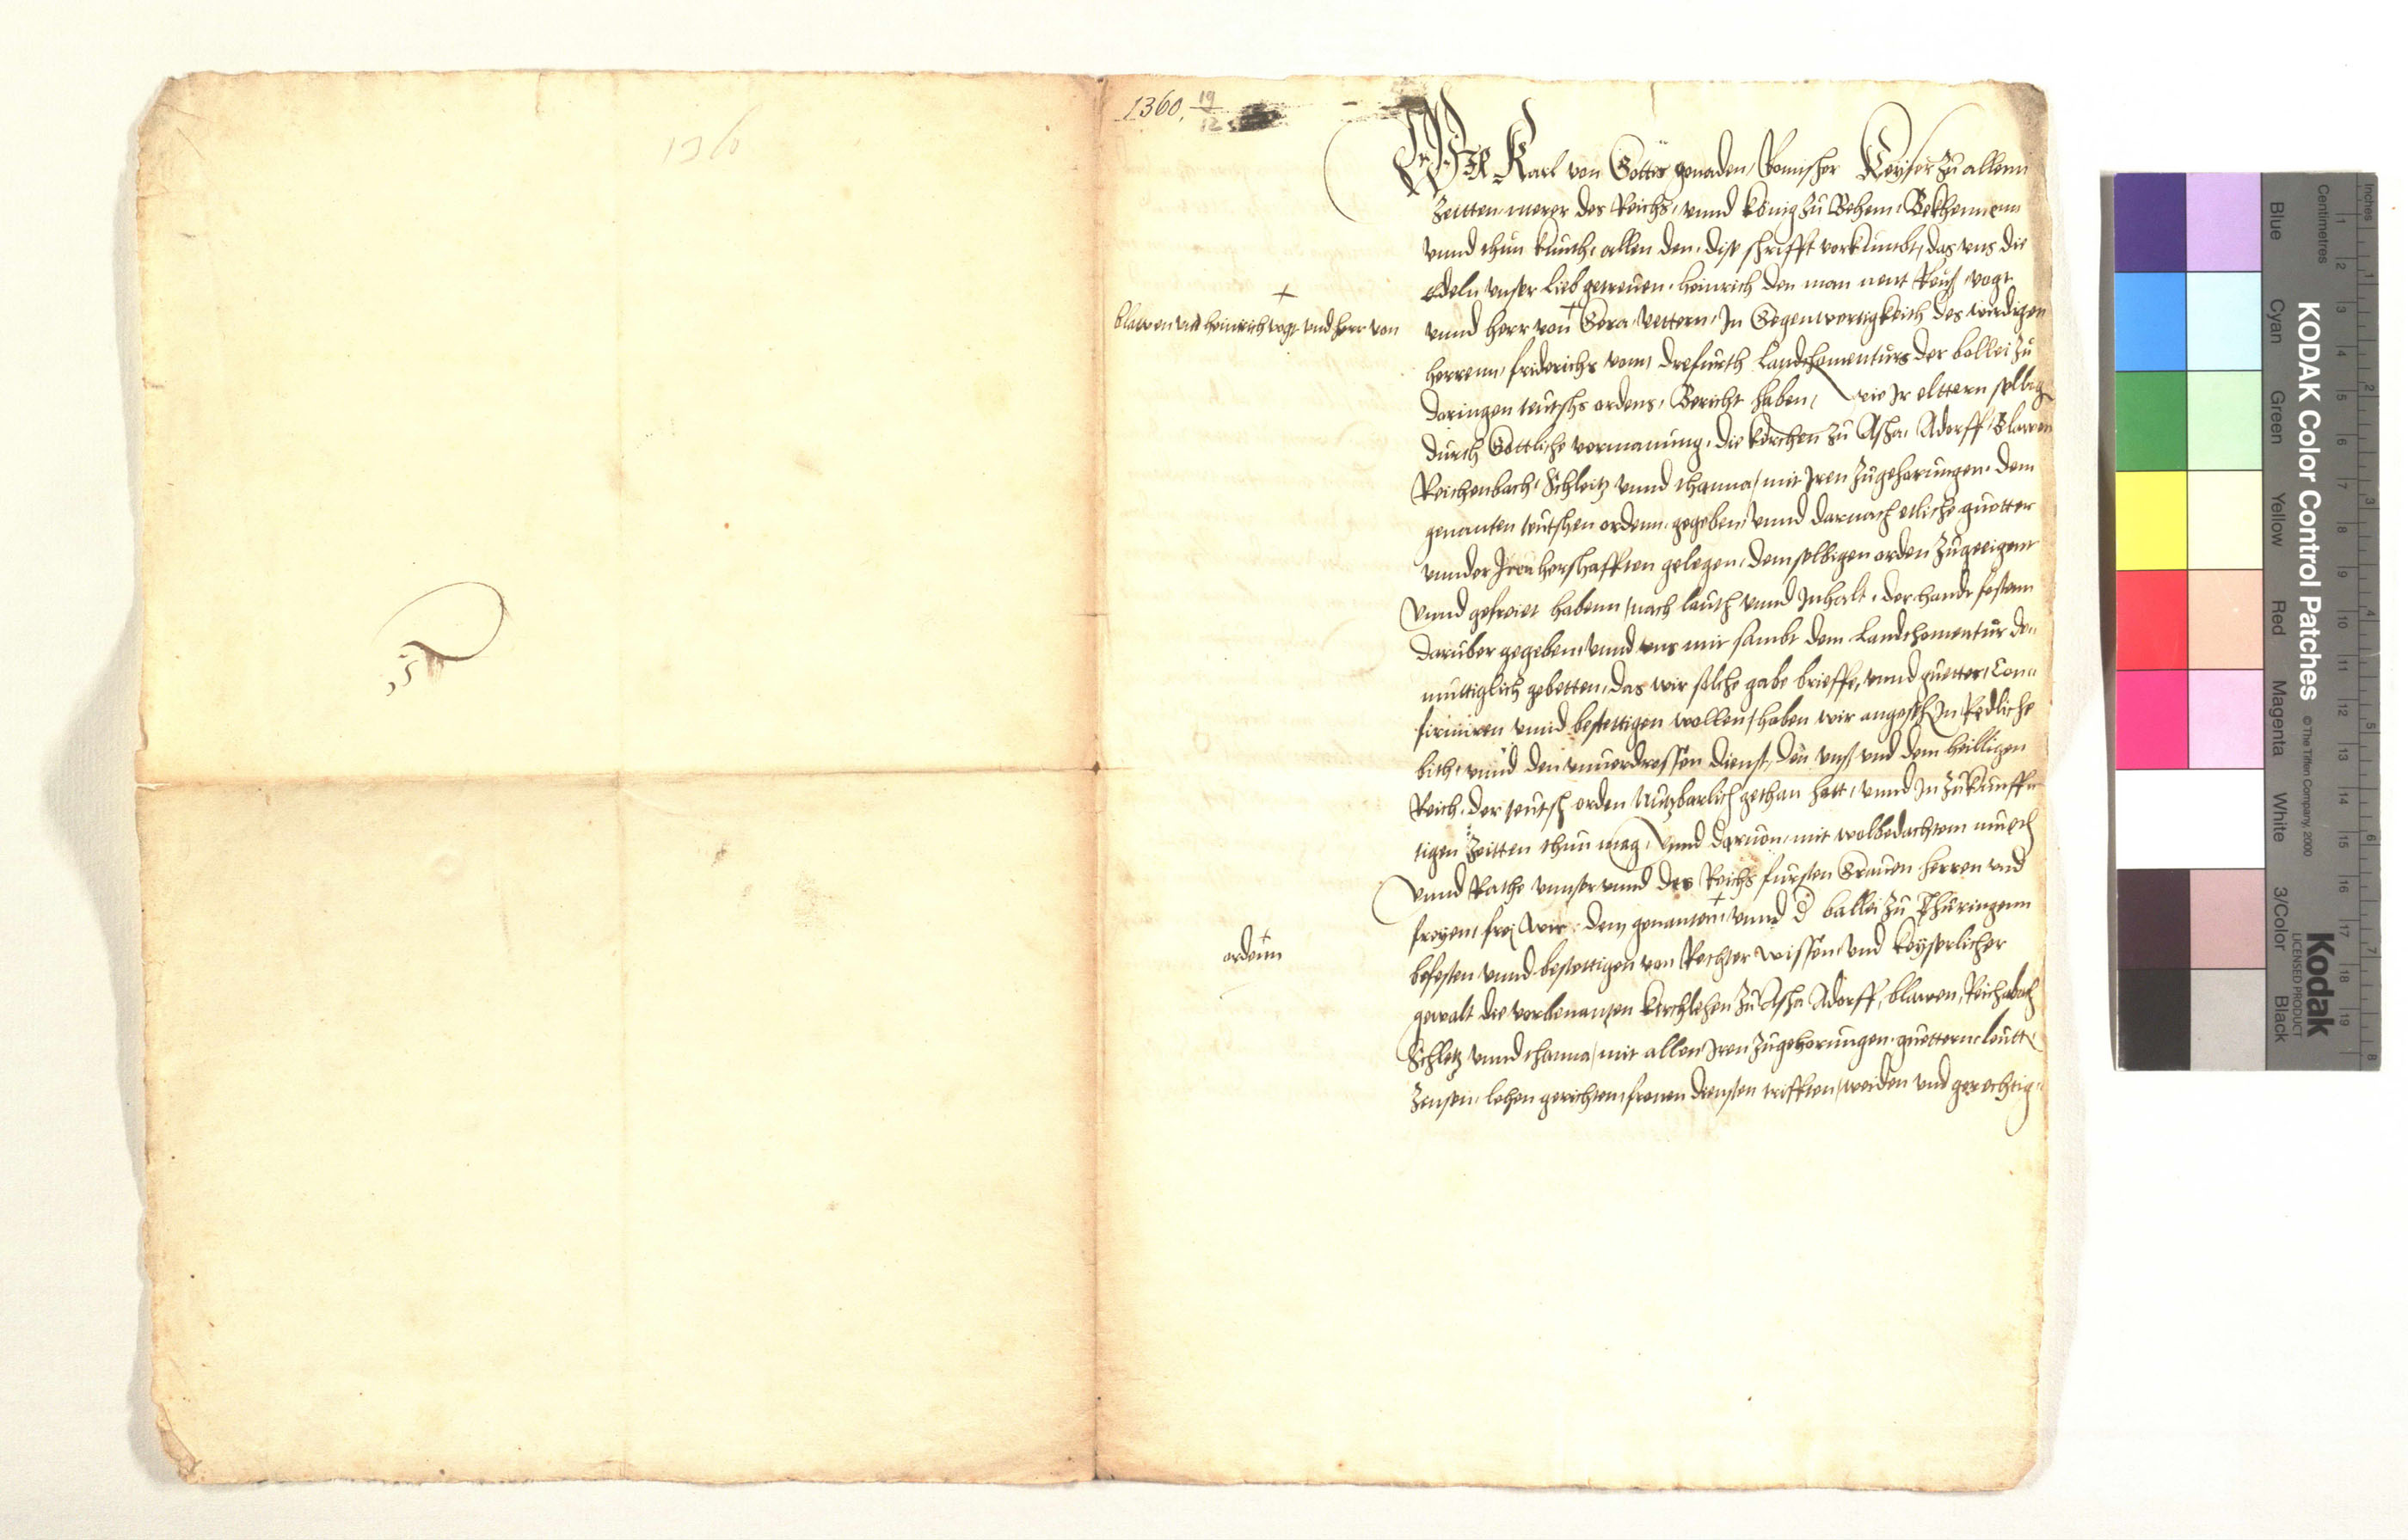 136
1360, 19/12
Wir Karl von Gottes genaden, Romischer Keyser zu allenn
Zeitten merer des Reichs, vnnd König zu Behem, Bekhennenn
vnnd thun kunth, allen den, disse schrifft vorkumbt, das vns die
edeln vnser lieb getreuen, heinrich den man nent Reuß, vogt
+
blawen vnd heinrich vogt vnd herr von
vnnd herr von + Gera, vettern, In Gegenwertigkeith des wirdigen
herrenn, friderichs vonn drefurth Landthomenturs der ballei zu
doringen teutschs ordens, Bericht haben, wie Jr elttern selbig
durch Göttliche vormanung, die kirchen zu Ascha, Adorff, Blawen
Reichenbach, Schleitz vnnd thanna, mit Jren zugehorungen, dem
genanten teutschen ordenn, gegeben, vnnd darnach etliche guetter
vnnder Jren herschafften gelegen, demselbigen orden zugeeigent
vnnd gefreiet habenn, nach lauth vnnd Jnhalt, der handtfestenn
daruber gegeben, vnnd vns mit sambt dem Landthomentur de-
muttiglich gebetten, das wir solche gabe brieffe, vnnd guetter, Con-
firmiren vnnd bestettigen wollen, haben wir angesehen Redliche
bith, vnnd den vnuerdrossen dienst, den vns vnd dem heilligen
Reich, der teutsch orden Nutzbarlich gethan hatt, vnnd Jn zukunff-
tigen Zeitten thun mag, Vnnd daruon, mit wolbedachtem mueth
vnnd Rathe vnnser vnnd des Reichs fursten Grauen herren vnd
freyen, frei wir, dem genanten + vnnd d ballei zu Thuringenn
ordenn
befesten vnnd bestettigen von Rechter wissen vnd keyserlicher
gewalt die vorbenanten kirchlehen zu Ascha Adorff, blawen, Reichebach
Schleitz vnnd thanna, mit allen Jren zugehorungen, guettern, leutt
Zensen, lehen gerichten, fronen diensten trifften, weiden vnd gerechtig-
KODAK Color Control Patches
© The Tiffen Company, 2000
Kodak
LICENSED PRODUCT
Inches 1 2 3 4 5 6 7 8
Centimetres 1 2 3 4 5 6 7 8 9 10 11 12 13 14 15 16 17 18 19
Blue Cyan Green Yellow Red Magenta White 3/Color Black